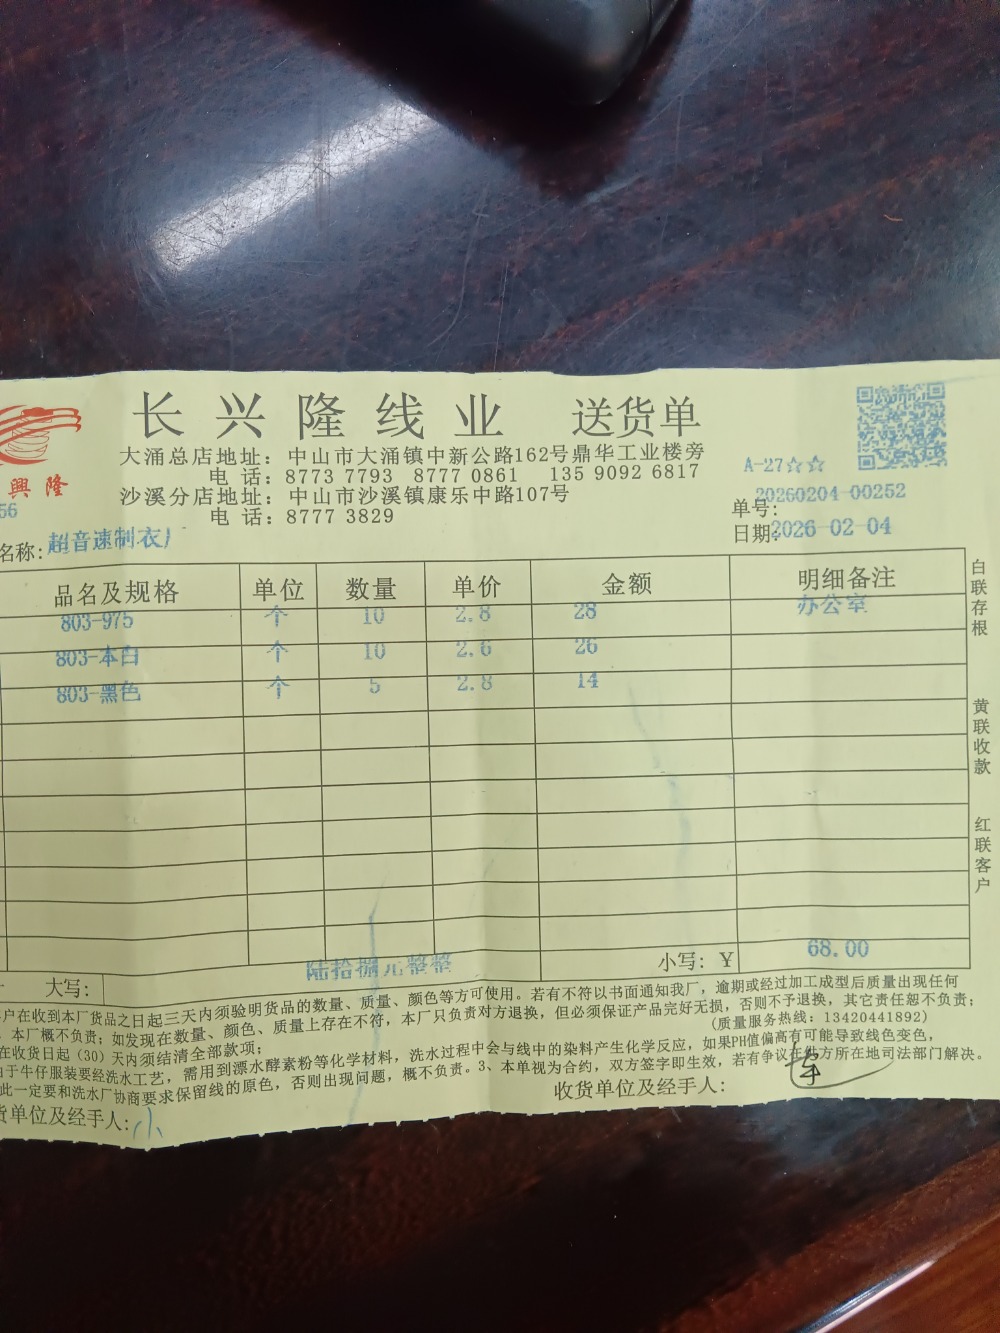 长兴隆线业 送货单
興隆
大涌总店地址：中山市大涌镇中新公路162号鼎华工业楼旁
电 话：8773 7793 8777 0861 135 9092 6817
沙溪分店地址：中山市沙溪镇康乐中路107号
电 话：8777 3829
A-27☆☆
56
单号：20260204-00252
日期：2026-02-04
名称：超音速制衣厂
品名及规格 单位 数量 单价 金额 明细备注
803-975 个 10 2.8 28 办公室
803-本白 个 10 2.6 26
803-黑色 个 5 2.8 14
大写： 陆拾捌元整整 小写：￥ 68.00
户在收到本厂货品之日起三天内须验明货品的数量、质量、颜色等方可使用。若有不符以书面通知我厂，逾期或经过加工成型后质量出现任何
，本厂概不负责；如发现在数量、颜色、质量上存在不符，本厂只负责对方退换，但必须保证产品完好无损，否则不予退换，其它责任恕不负责；
（质量服务热线：13420441892）
在收货日起（30）天内须结清全部款项；
由于牛仔服装要经洗水工艺，需用到漂水酵素粉等化学材料，洗水过程中会与线中的染料产生化学反应，如果PH值偏高有可能导致线色变色，
此一定要和洗水厂协商要求保留线的原色，否则出现问题，概不负责。3、本单视为合约，双方签字即生效，若有争议在 方所在地司法部门解决。
货单位及经手人：小 收货单位及经手人：
白联存根
黄联收款
红联客户